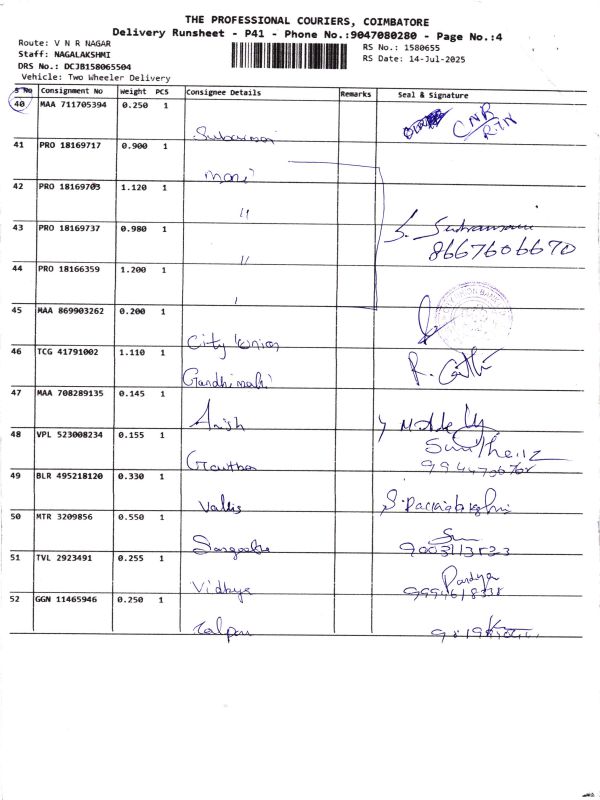 THE PROFESSIONAL COURIERS, COIMBATORE
Delivery Runsheet - P41 - Phone No.:9047080280 - Page No.:4
Route: V N R NAGAR
Staff: NAGALAKSHMI
DRS No.: DCJB158065504
Vehicle: Two Wheeler Delivery
RS No.: 1580655
RS Date: 14-Jul-2025
S No Consignment No Weight PCS Consignee Details Remarks Seal & Signature
40 MAA 711705394 0.250 1
CNR
RTN
41 PRO 18169717 0.900 1
Mani
42 PRO 18169703 1.120 1
"
43 PRO 18169737 0.980 1
"
8667606670
44 PRO 18166359 1.200 1
45 MAA 869903262 0.200 1
City Union
46 TCG 41791002 1.110 1
Gandhimathi
47 MAA 708289135 0.145 1
Anish
48 VPL 523008234 0.155 1
49 BLR 495218120 0.330 1
50 MTR 3209856 0.550 1
51 TVL 2923491 0.255 1
Vidhya
52 GGN 11465946 0.250 1